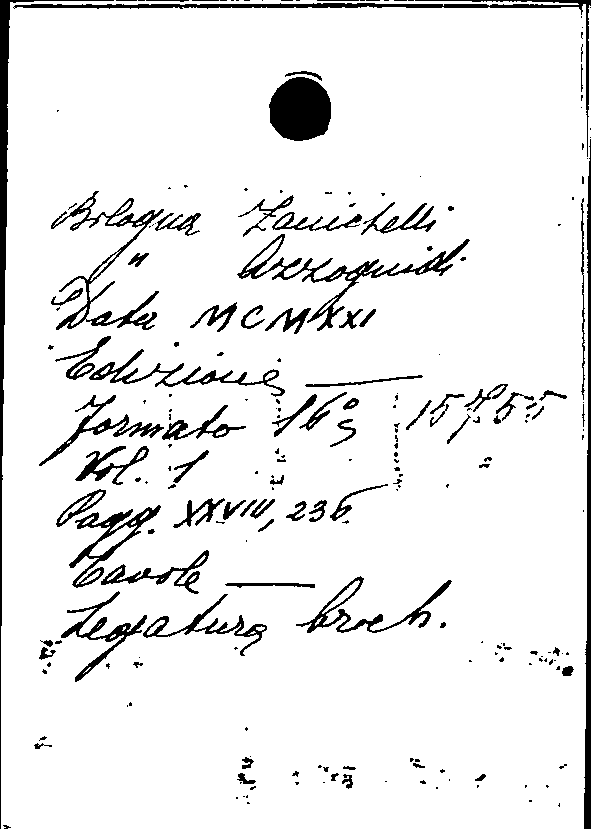 Bologna Zanichelli
" Azzoguidi
Data MCMXXI
Edizione —
Formato 16° 15755
Vol. 1
Pagg. XXVIII, 236
Tavole —
Legatura broch.